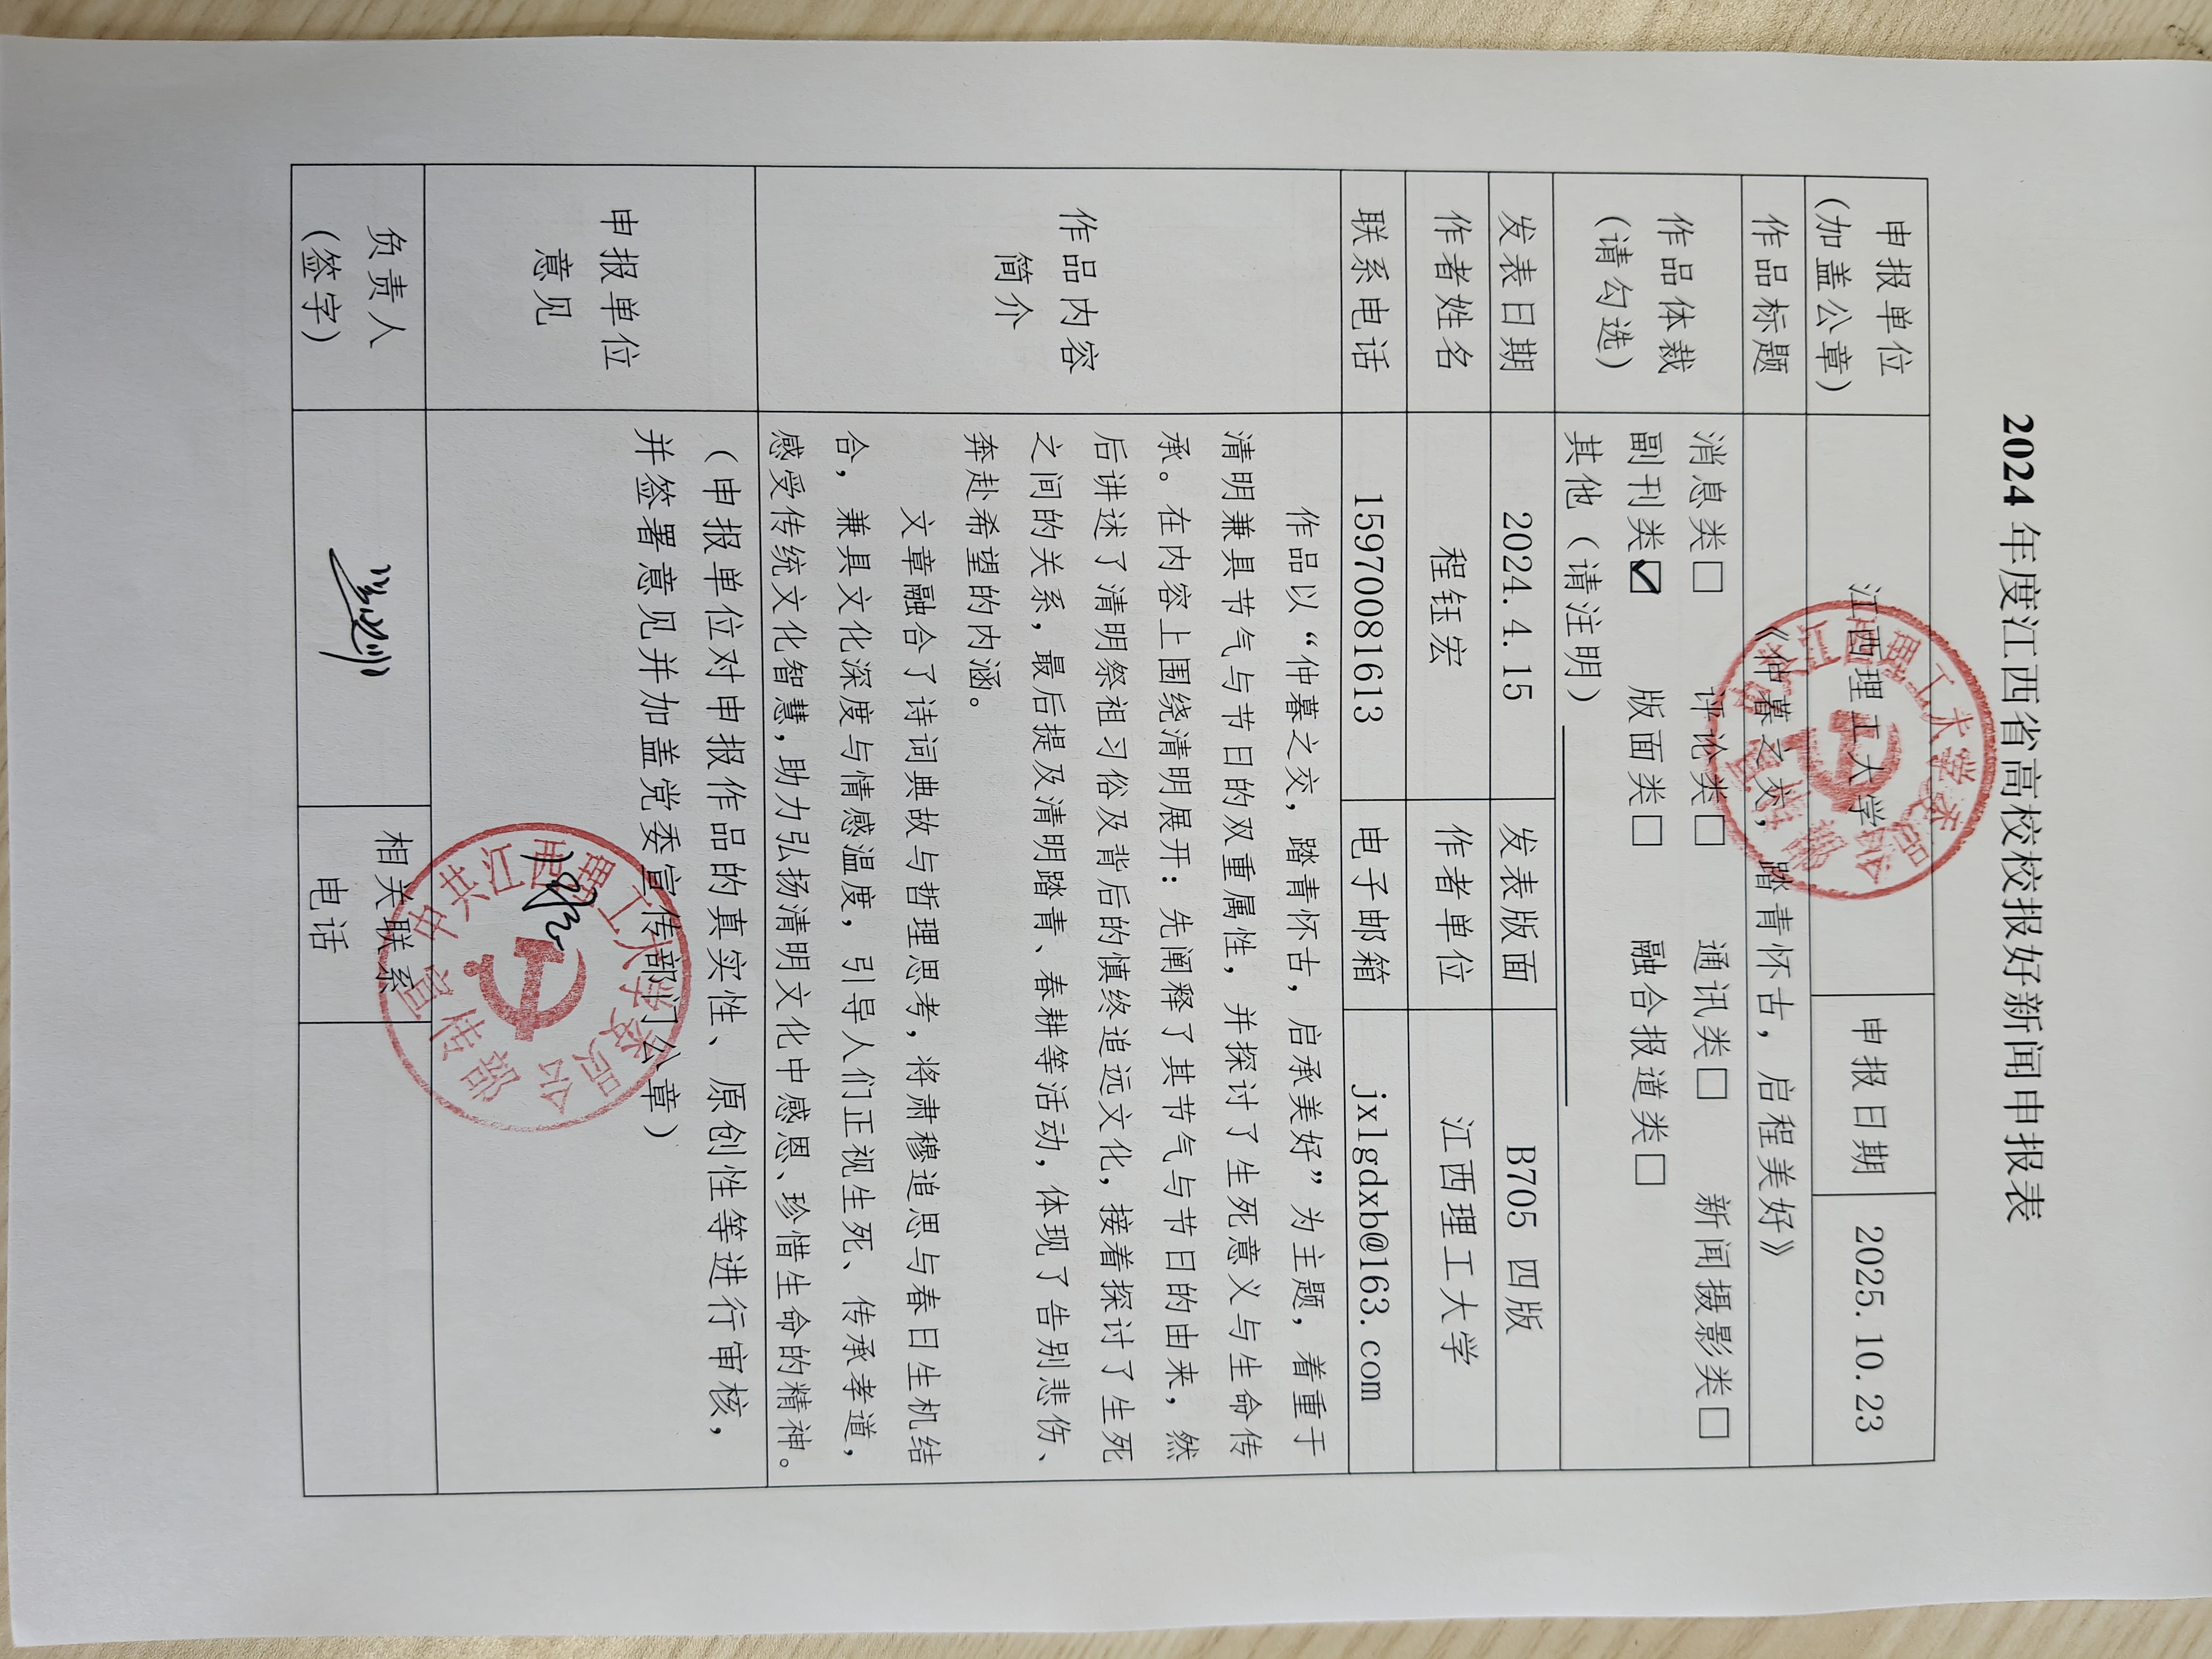 2024 年度江西省高校校报好新闻申报表
申报单位
(加盖公章)
江西理工大学
申报日期
2025.10.23
作品标题
《仲暮之交，踏青怀古，启程美好》
作品体裁
(请勾选)
消息类□ 评论类□ 通讯类□ 新闻摄影类□
副刊类☑ 版面类□ 融合报道类□
其他（请注明）
发表日期
2024.4.15
发表版面
B705 四版
作者姓名
程钰宏
作者单位
江西理工大学
联系电话
15970081613
电子邮箱
jxlgdxb@163.com
作品内容
简介
作品以“仲暮之交，踏青怀古，启承美好”为主题，着重于
清明兼具节气与节日的双重属性，并探讨了生死意义与生命传
承。在内容上围绕清明展开：先阐释了其节气与节日的由来，然
后讲述了清明祭祖习俗及背后的慎终追远文化，接着探讨了生死
之间的关系，最后提及清明踏青、春耕等活动，体现了告别悲伤、
奔赴希望的内涵。
文章融合了诗词典故与哲理思考，将肃穆追思与春日生机结
合，兼具文化深度与情感温度，引导人们正视生死、传承孝道，
感受传统文化智慧，助力弘扬清明文化中感恩、珍惜生命的精神。
申报单位
意见
（申报单位对申报作品的真实性、原创性等进行审核，
并签署意见并加盖党委宣传部门公章）
中共江西理工大学委员会
宣传部
负责人
(签字)
相关联系
电话